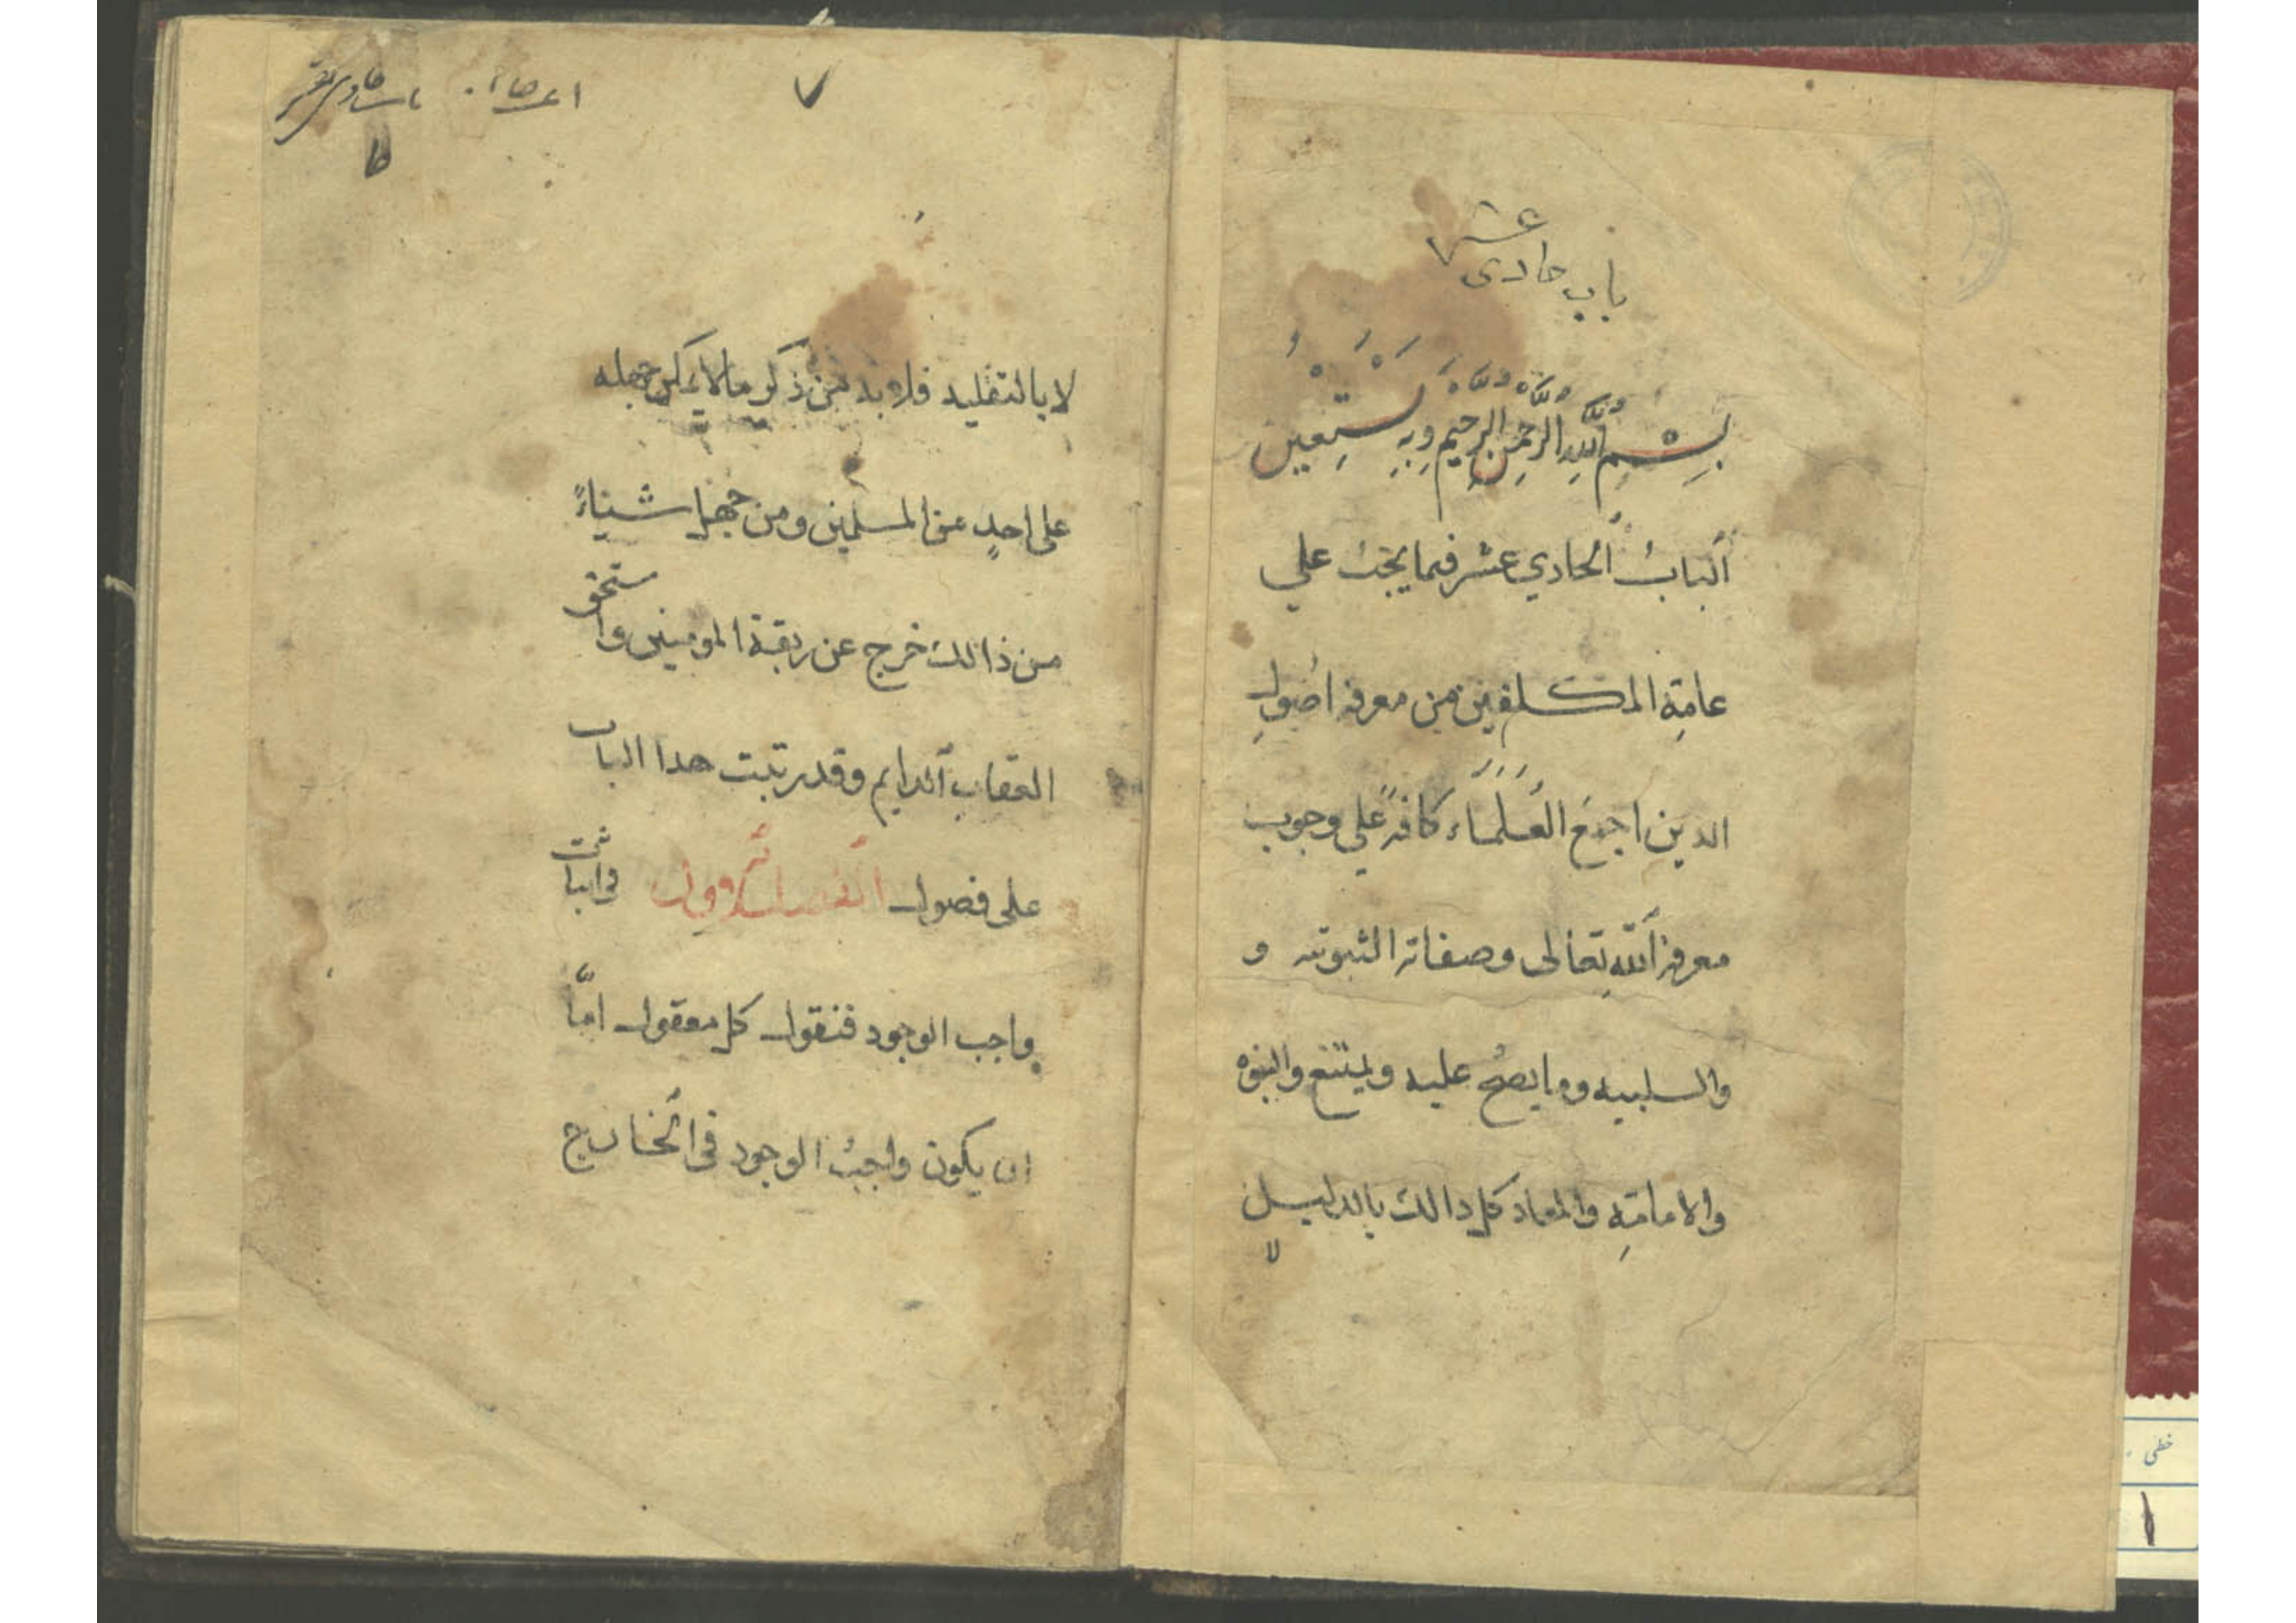 باب حادى
عشر
بِسْمِ اللَّهِ الرَّحْمنِ الرَّحِيمِ وَبِهِ نَسْتَعِينُ
اَلبابُ اَلحادي عشر فيما يجبُ علي
عامةِ المكلفين من معرفة اصُولِ
الدين اجمعَ العُلَمَاء كافةً علي وجوب
معرفة اَللهِ تعالى وصفاته الثبوتيه و
والسلبيه وما يصحُ عليه ويمتنع والنبوه
والامامتِه والمعاد كل ذالك بالدليل
لا
٧
باب حادى عشر
لا بالتقليد فلا بد من ذكر ما لا يمكن جهله
على احدٍ من المسلمين ومن جهل شيئاءً
من ذالك خرج عن ربقة المومنين واستحق
العقاب اَلدايم وقد رتبت هدا الباب
على فصول الفصل الاَوول فى اثبات
واجب الوجود فنقول كل معقول امّا
ان يكون واجبُ الوجود فى اَلخارج
خطى
١